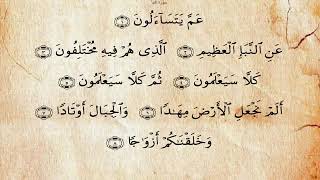 عَمَّ يَتَسَآءَلُونَ ١
عَنِ ٱلنَّبَإِ ٱلْعَظِيمِ ٢ ٱلَّذِى هُمْ فِيهِ مُخْتَلِفُونَ ٣
كَلَّا سَيَعْلَمُونَ ٤ ثُمَّ كَلَّا سَيَعْلَمُونَ ٥
أَلَمْ نَجْعَلِ ٱلْأَرْضَ مِهَـٰدًا ٦ وَٱلْجِبَالَ أَوْتَادًا ٧
وَخَلَقْنَـٰكُمْ أَزْوَٰجًا ٨